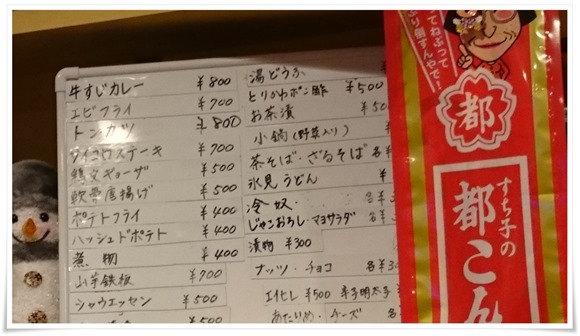 牛すじカレー ¥800
エビフライ ¥700
トンカツ ¥800
サイコロステーキ ¥700
ギョーザ ¥500
軟骨唐揚げ ¥500
ポテトフライ ¥400
ハッシュドポテト ¥400
煮物 ¥400
山芋鉄板 ¥700
シャウエッセン ¥500
湯どうふ
とりかわポン酢 ¥500
お茶漬 ¥50
小鍋(野菜入り)
茶そば・ざるそば 各¥
氷見うどん ¥
冷奴 各¥
じゃこおろし・マヨサラダ 各¥
漬物 ¥300
ナッツ・チョコ 各¥30
エイヒレ ¥500 辛子明太子
あたりめ・チーズ 各¥
都
すち子の
都こん